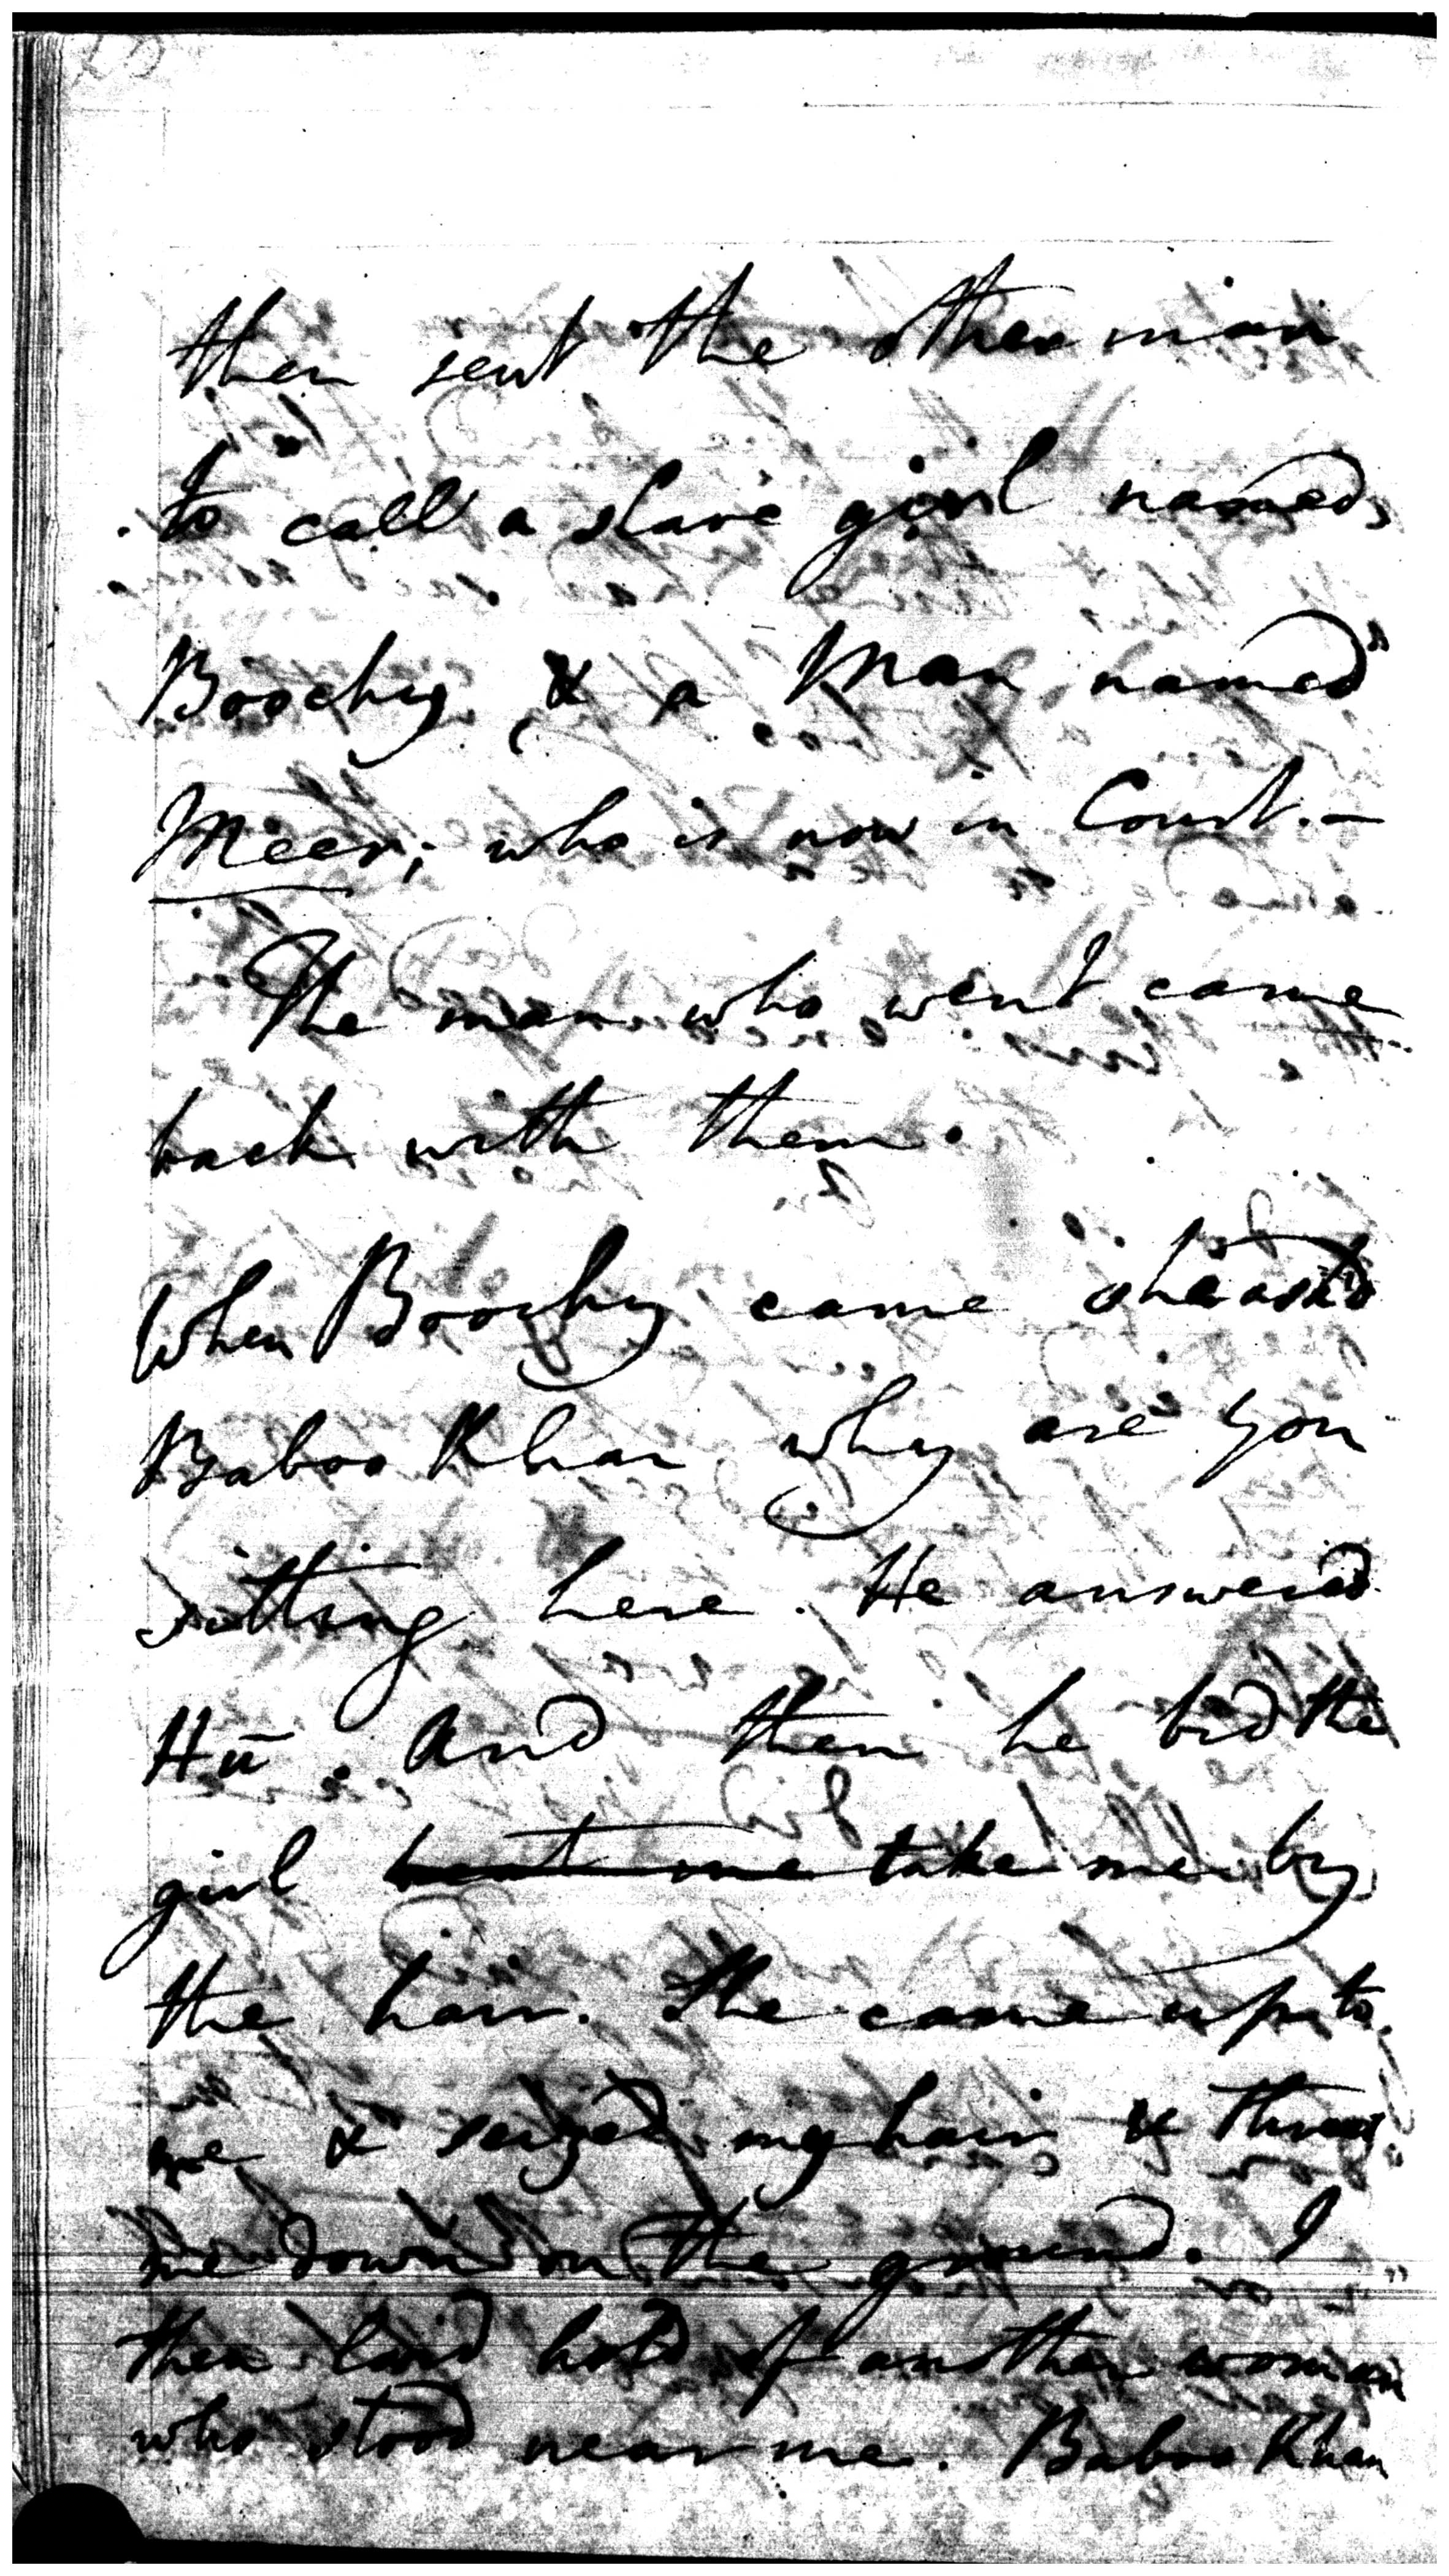 then sent the other man
to call a slave girl named,
Boochy, & a Man named
Meer; who is now in Court. —
The man who went came
back with them.
When Boochy came she asked
Baboo Khan why are you
sitting here. He answered
And then he bid the
girl beat me take me by
the hair. She came up to
me & seized my hair & threw
me down on the ground. I
then laid hold of another woman
who stood near me. Baboo Khan